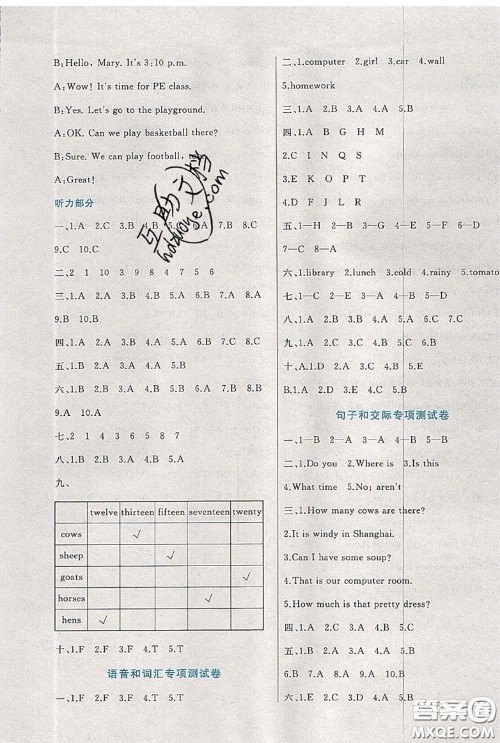 B:Hello, Mary. It's 3:10 p.m.
A:Wow! It's time for PE class.
B:Yes. Let's go to the playground.
A:OK. Can we play basketball there?
B:Sure. We can play football,
A:Great!
听力部分
一、1.A 2.B 3.C 4.B 5.B 6.A 7.B 8.C
9.C 10.C
二、2 1 10 3 9 8 4 7 5 6
三、1.A 2.B 3.A 4.B 5.A 6.B 7.B 8.A
9.B 10.A
四、1.A 2.B 3.A 4.B 5.A 6.B 7.A 8.B
五、1.B 2.A 3.B 4.A 5.B
六、1.B 2.B 3.B 4.B 5.B 6.B 7.B 8.B
9.A 10.A
七、2 6 1 3 4 5 8 7
八、1.B 2.A 3.B 4.A 5.A 6.B 7.A 8.A
九、
twelve thirteen fifteen seventeen twenty
cows ✓
sheep ✓
goats ✓
horses ✓
hens ✓
十、1.F 2.F 3.F 4.T 5.T
语音和词汇专项测试卷
一、1.F 2.F 3.T 4.T 5.T
二、1.computer 2.girl 3.car 4.wall
5.homework
三、1.A 2.B 3.A 4.A 5.B
四、1.A B G H M
2.C I N Q S
3.E K O P T
4.D F J L R
五、1—B 2—E 3—A 4—D 5—G 6—H
7—C 8—F
六、1.library 2.lunch 3.cold 4.rainy 5.tomato
七、1—E 2—A 3—B 4—C 5—D
八、1.A 2.B 3.A 4.A 5.B
九、1.C 2.A 3.A 4.B 5.A
十、A.1.D 2.A 3.C 4.E 5.B
B.1.A 2.B 3.A 4.B 5.B
句子和交际专项测试卷
一、1—B 2—A 3—D 4—E 5—C
二、1.Do you 2.Where is 3.Is this
4.What time 5.No; aren't
三、1.How many cows are there?
2.It is windy in Shanghai.
3.Can I have some soup?
4.That is our computer room.
5.How much is that pretty dress?
四、1.A 2.B 3.C 4.D 5.A
五、1.B 2.B 3.A 4.A 5.B
六、1.A 2.B 3.A 4.C 5.B
互助文档
hdzuoye.com
答案圈
MXQE.COM